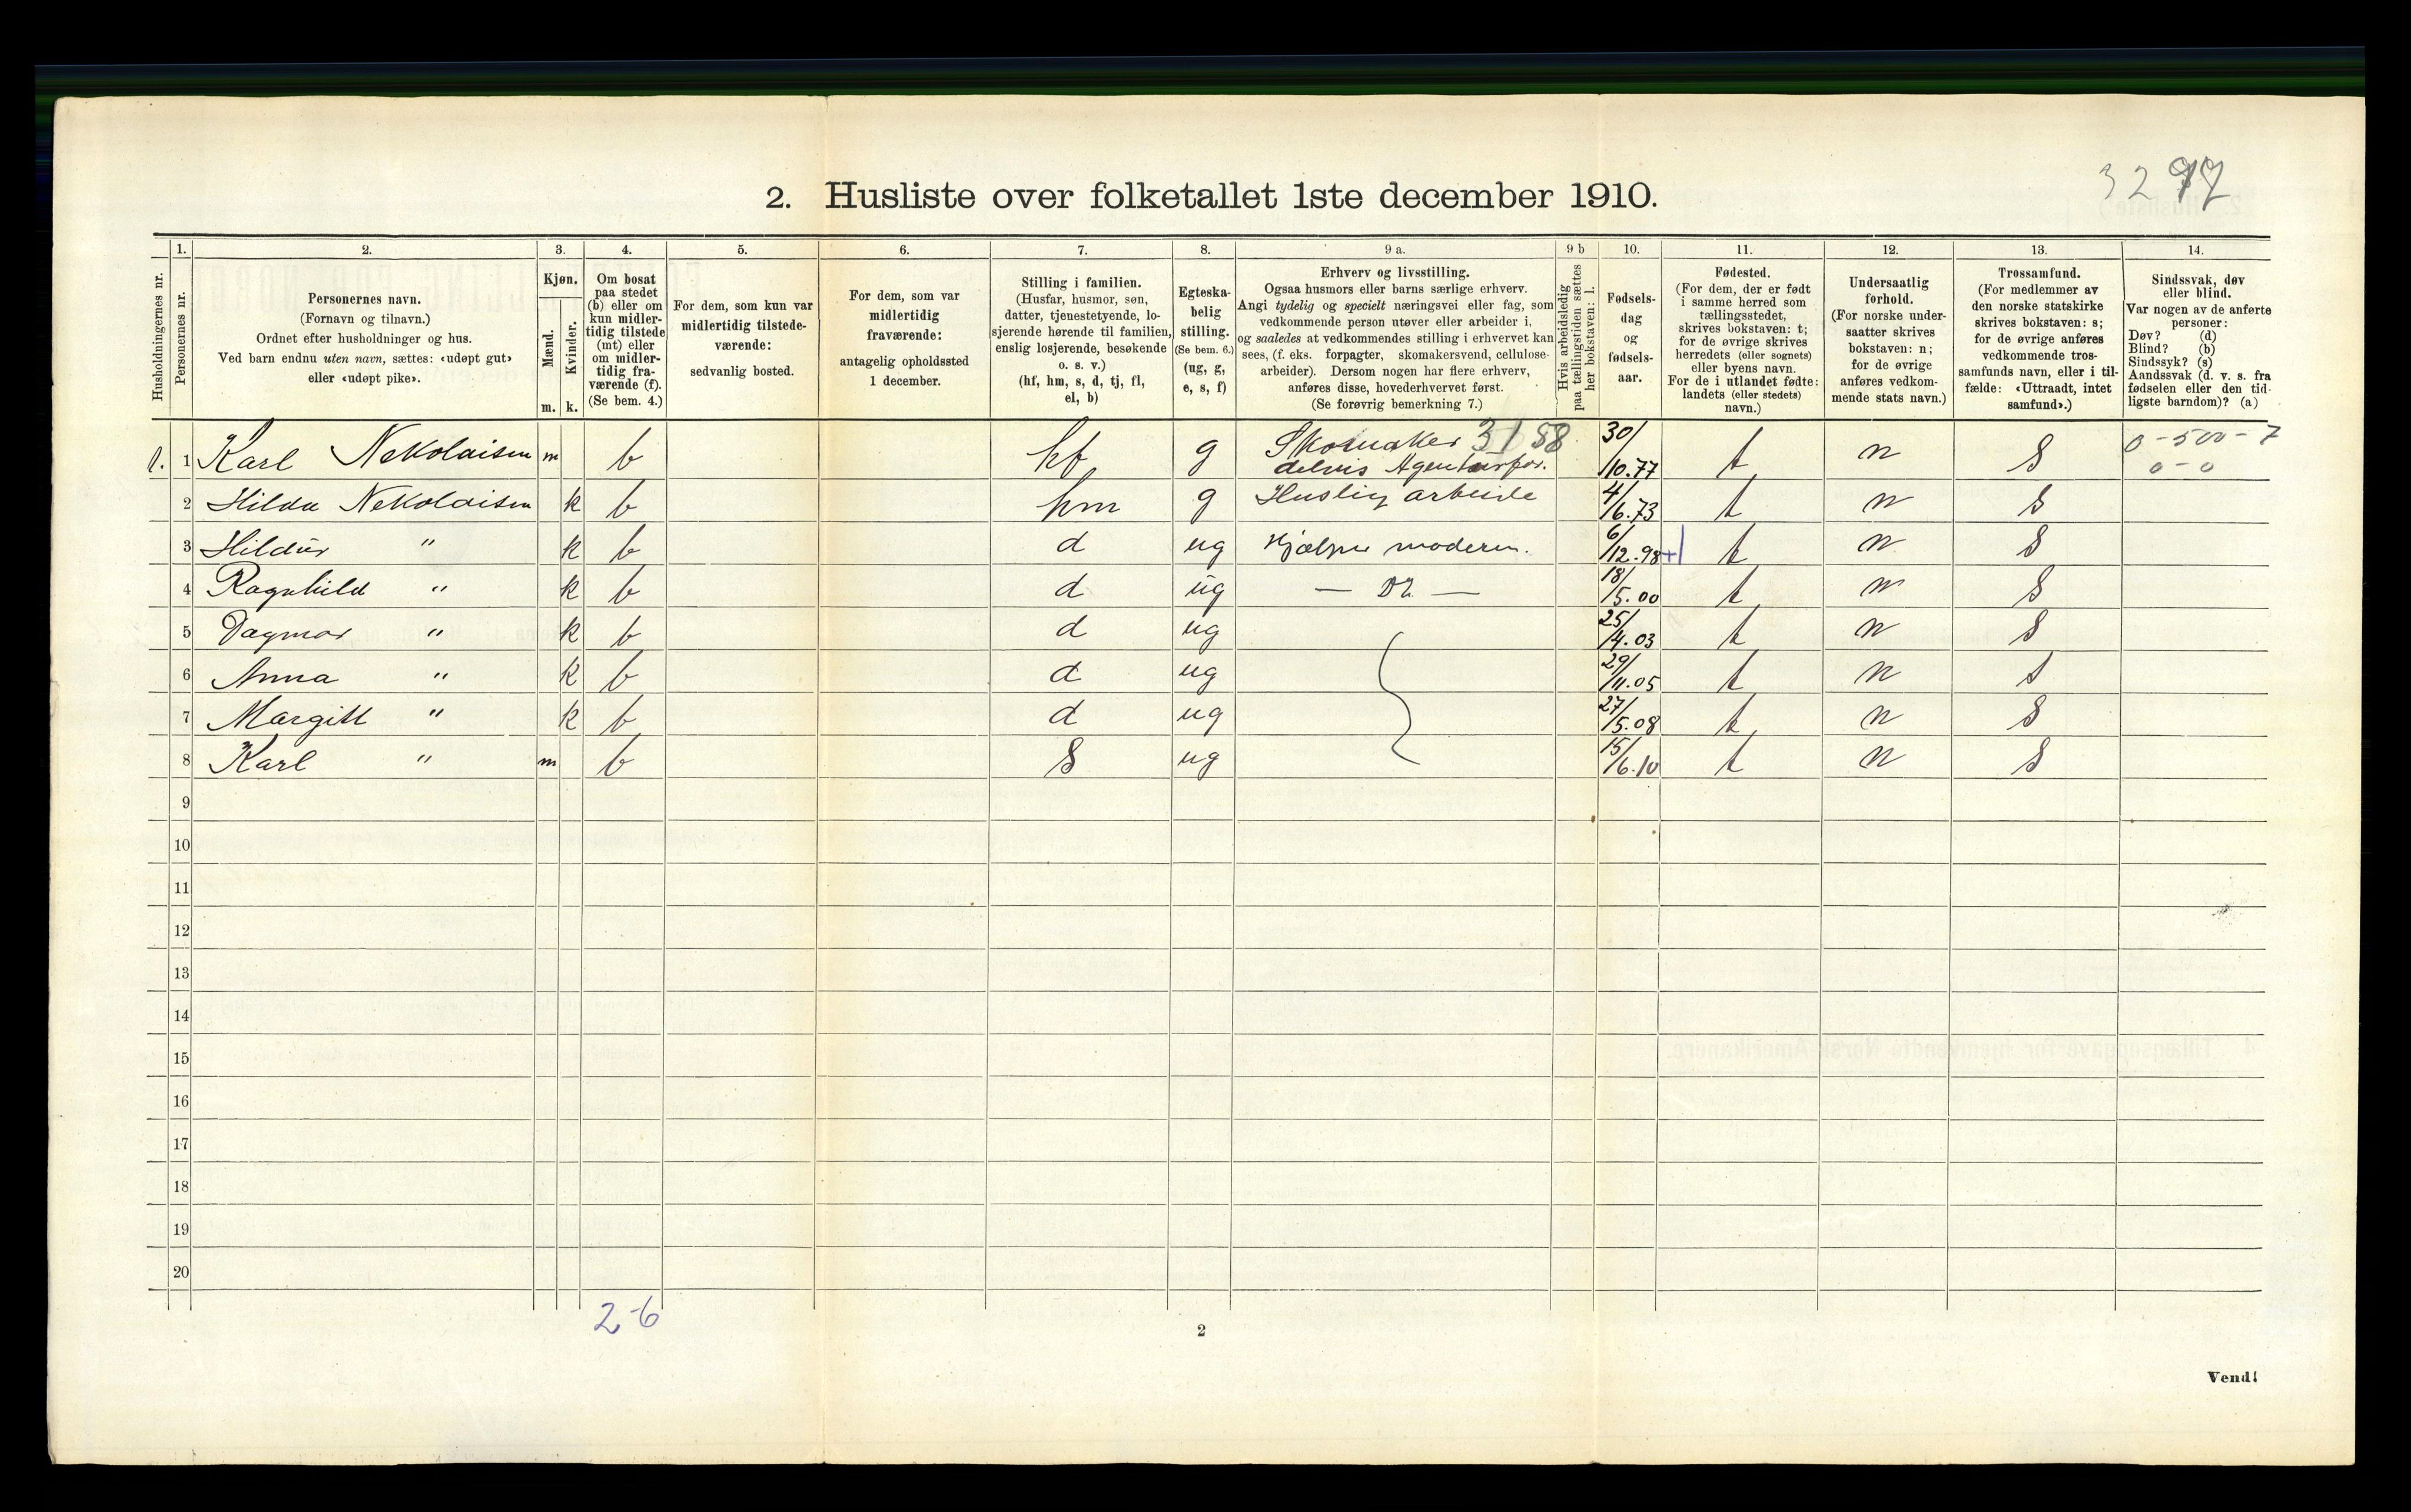 3297
2. Husliste over folketallet 1ste december 1910.
Husholdningernes nr.
1. Personernes nr.
2. Personernes navn.
(Fornavn og tilnavn.)
Ordnet efter husholdninger og hus.
Ved barn endnu uten navn, sættes: «udøpt gut»
eller «udøpt pike».
3. Kjøn.
Mænd. m.
Kvinder. k.
4. Om bosat
paa stedet
(b) eller om
kun midler-
tidig tilstede
(mt) eller
om midler-
tidig fra-
værende (f).
(Se bem. 4.)
5. For dem, som kun var
midlertidig tilstede-
værende:
sedvanlig bosted.
6. For dem, som var
midlertidig
fraværende:
antagelig opholdssted
1 december.
7. Stilling i familien.
(Husfar, husmor, søn,
datter, tjenestetyende, lo-
sjerende hørende til familien,
enslig losjerende, besøkende
o. s. v.)
(hf, hm, s, d, tj, fl,
el, b)
8. Egteska-
belig
stilling.
(Se bem. 6.)
(ug, g,
e, s, f)
9 a. Erhverv og livsstilling.
Ogsaa husmors eller barns særlige erhverv.
Angi tydelig og specielt næringsvei eller fag, som
vedkommende person utøver eller arbeider i,
og saaledes at vedkommendes stilling i erhvervet kan
sees, (f. eks. forpagter, skomakersvend, cellulose-
arbeider). Dersom nogen har flere erhverv,
anføres disse, hovederhvervet først.
(Se forøvrig bemerkning 7.)
9 b Hvis arbeidsledig
paa tællingstiden sættes
her bokstaven: l.
10. Fødsels-
dag
og
fødsels-
aar.
11. Fødested.
(For dem, der er født
i samme herred som
tællingsstedet,
skrives bokstaven: t;
for de øvrige skrives
herredets (eller sognets)
eller byens navn.
For de i utlandet fødte:
landets (eller stedets)
navn.)
12. Undersaatlig
forhold.
(For norske under-
saatter skrives
bokstaven: n;
for de øvrige
anføres vedkom-
mende stats navn.)
13. Trossamfund.
(For medlemmer av
den norske statskirke
skrives bokstaven: s;
for de øvrige anføres
vedkommende tros-
samfunds navn, eller i til-
fælde: «Uttraadt, intet
samfund».)
14. Sindssvak, døv
eller blind.
Var nogen av de anførte
personer:
Døv? (d)
Blind? (b)
Sindssyk? (s)
Aandssvak (d. v. s. fra
fødselen eller den tid-
ligste barndom)? (a)
1. 1 Karl Nekolaisen m b hf g Skomaker 3158 delvis Agenturfor. 30/10.77 t n s 0-500-7 0-0
2 Hilda Nekolaisen k b hm g Huslig arbeide 4/6.73 t n s
3 Hildur " k b d ug Hjælper moderen. 6/12.98 +1 t n s
4 Ragnhild " k b d ug — Do — 18/5.00 t n s
5 Dagmar " k b d ug 25/4.03 t n s
6 Anna " k b d ug 29/11.05 t n s
7 Margitt " k b d ug 27/5.08 t n s
8 Karl " m b s ug 15/6.10 t n s
9
10
11
12
13
14
15
16
17
18
19
20
2-6
2
Vend!